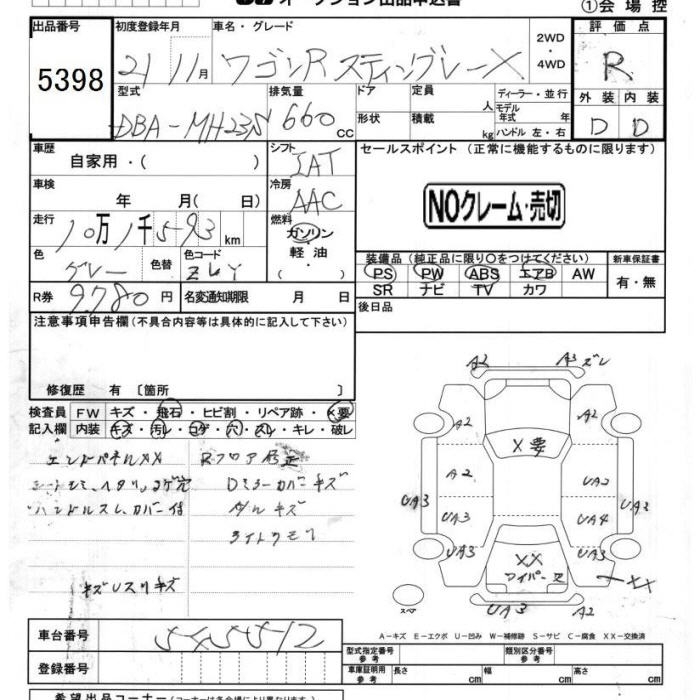 オークション出品申込書
①会場控
出品番号 初度登録年月 車名・グレード 評価点
5398 21 11月 ワゴンR スティングレーX 2WD・4WD R
型式 排気量 ドア 定員 人 ディーラー・並行 外装 内装
DBA-MH23S 660 CC 形状 積載 kg モデル年式 年 ハンドル 左・右 D D
車歴 自家用・( ) シフト IAT セールスポイント (正常に機能するものに限ります)
車検 年 月( 日) 冷房 AAC
NOクレーム・売切
走行 10万1千593km 燃料 ガソリン・軽油・( )
色 グレー 色替 色コード ZLY
装備品 (純正品に限り○をつけてください) 新車保証書
PS PW ABS エアB AW 有・無
SR ナビ TV カワ
R券 9780円 名変通知期限 月 日 後日品
注意事項申告欄(不具合内容等は具体的に記入して下さい)
修復歴 有 〔箇所 〕
検査員 FW キズ・飛石・ヒビ割・リペア跡・×要
記入欄 内装 キズ・汚レ・コゲ・穴・スレ・キレ・破レ
エンドパネルXX
Rフロア修正
シートシミ、ヘタリ、コゲ穴
Dミラーカバーキズ
ハンドルスレ、カバー付
ダッシュキズ
ライトクモリ
キズレスリキズ
A2 A3 ズレ
A2 A2
×要
A2 UA2
UA3 UA3
UA3 UA4
UA3 UA3
XX
ワイパーヌ
XX
UA3 A2
スペア
A-キズ E-エクボ U-凹み W-補修跡 S-サビ C-腐食 XX-交換済
車台番号 545512
登録番号
型式指定番号 参考 類別区分番号 参考
車庫証明用 参考 長さ cm 幅 cm 高さ cm
希望出品コーナー(コーナーは各会場により異なります)